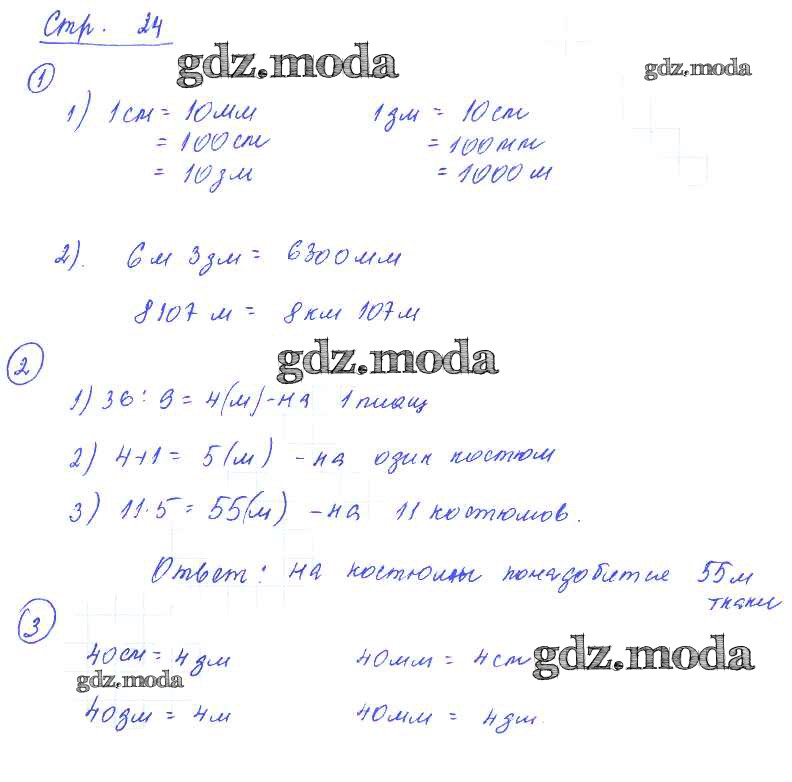 Стр. 24
gdz.moda
gdz.moda
1
1) 1см = 10мм 1дм = 10см
= 100см = 100мм
= 10дм = 1000м
2). 6м 3дм = 6300мм
8107м = 8км 107м
gdz.moda
2
1) 36 : 9 = 4(м) - на 1 плащ
2) 4+1 = 5(м) - на один костюм
3) 11·5 = 55(м) - на 11 костюмов.
Ответ: на костюмы понадобится 55м
ткани
3
40см = 4дм 40мм = 4см
gdz.moda
gdz.moda
40дм = 4м 40мм = 4дм.